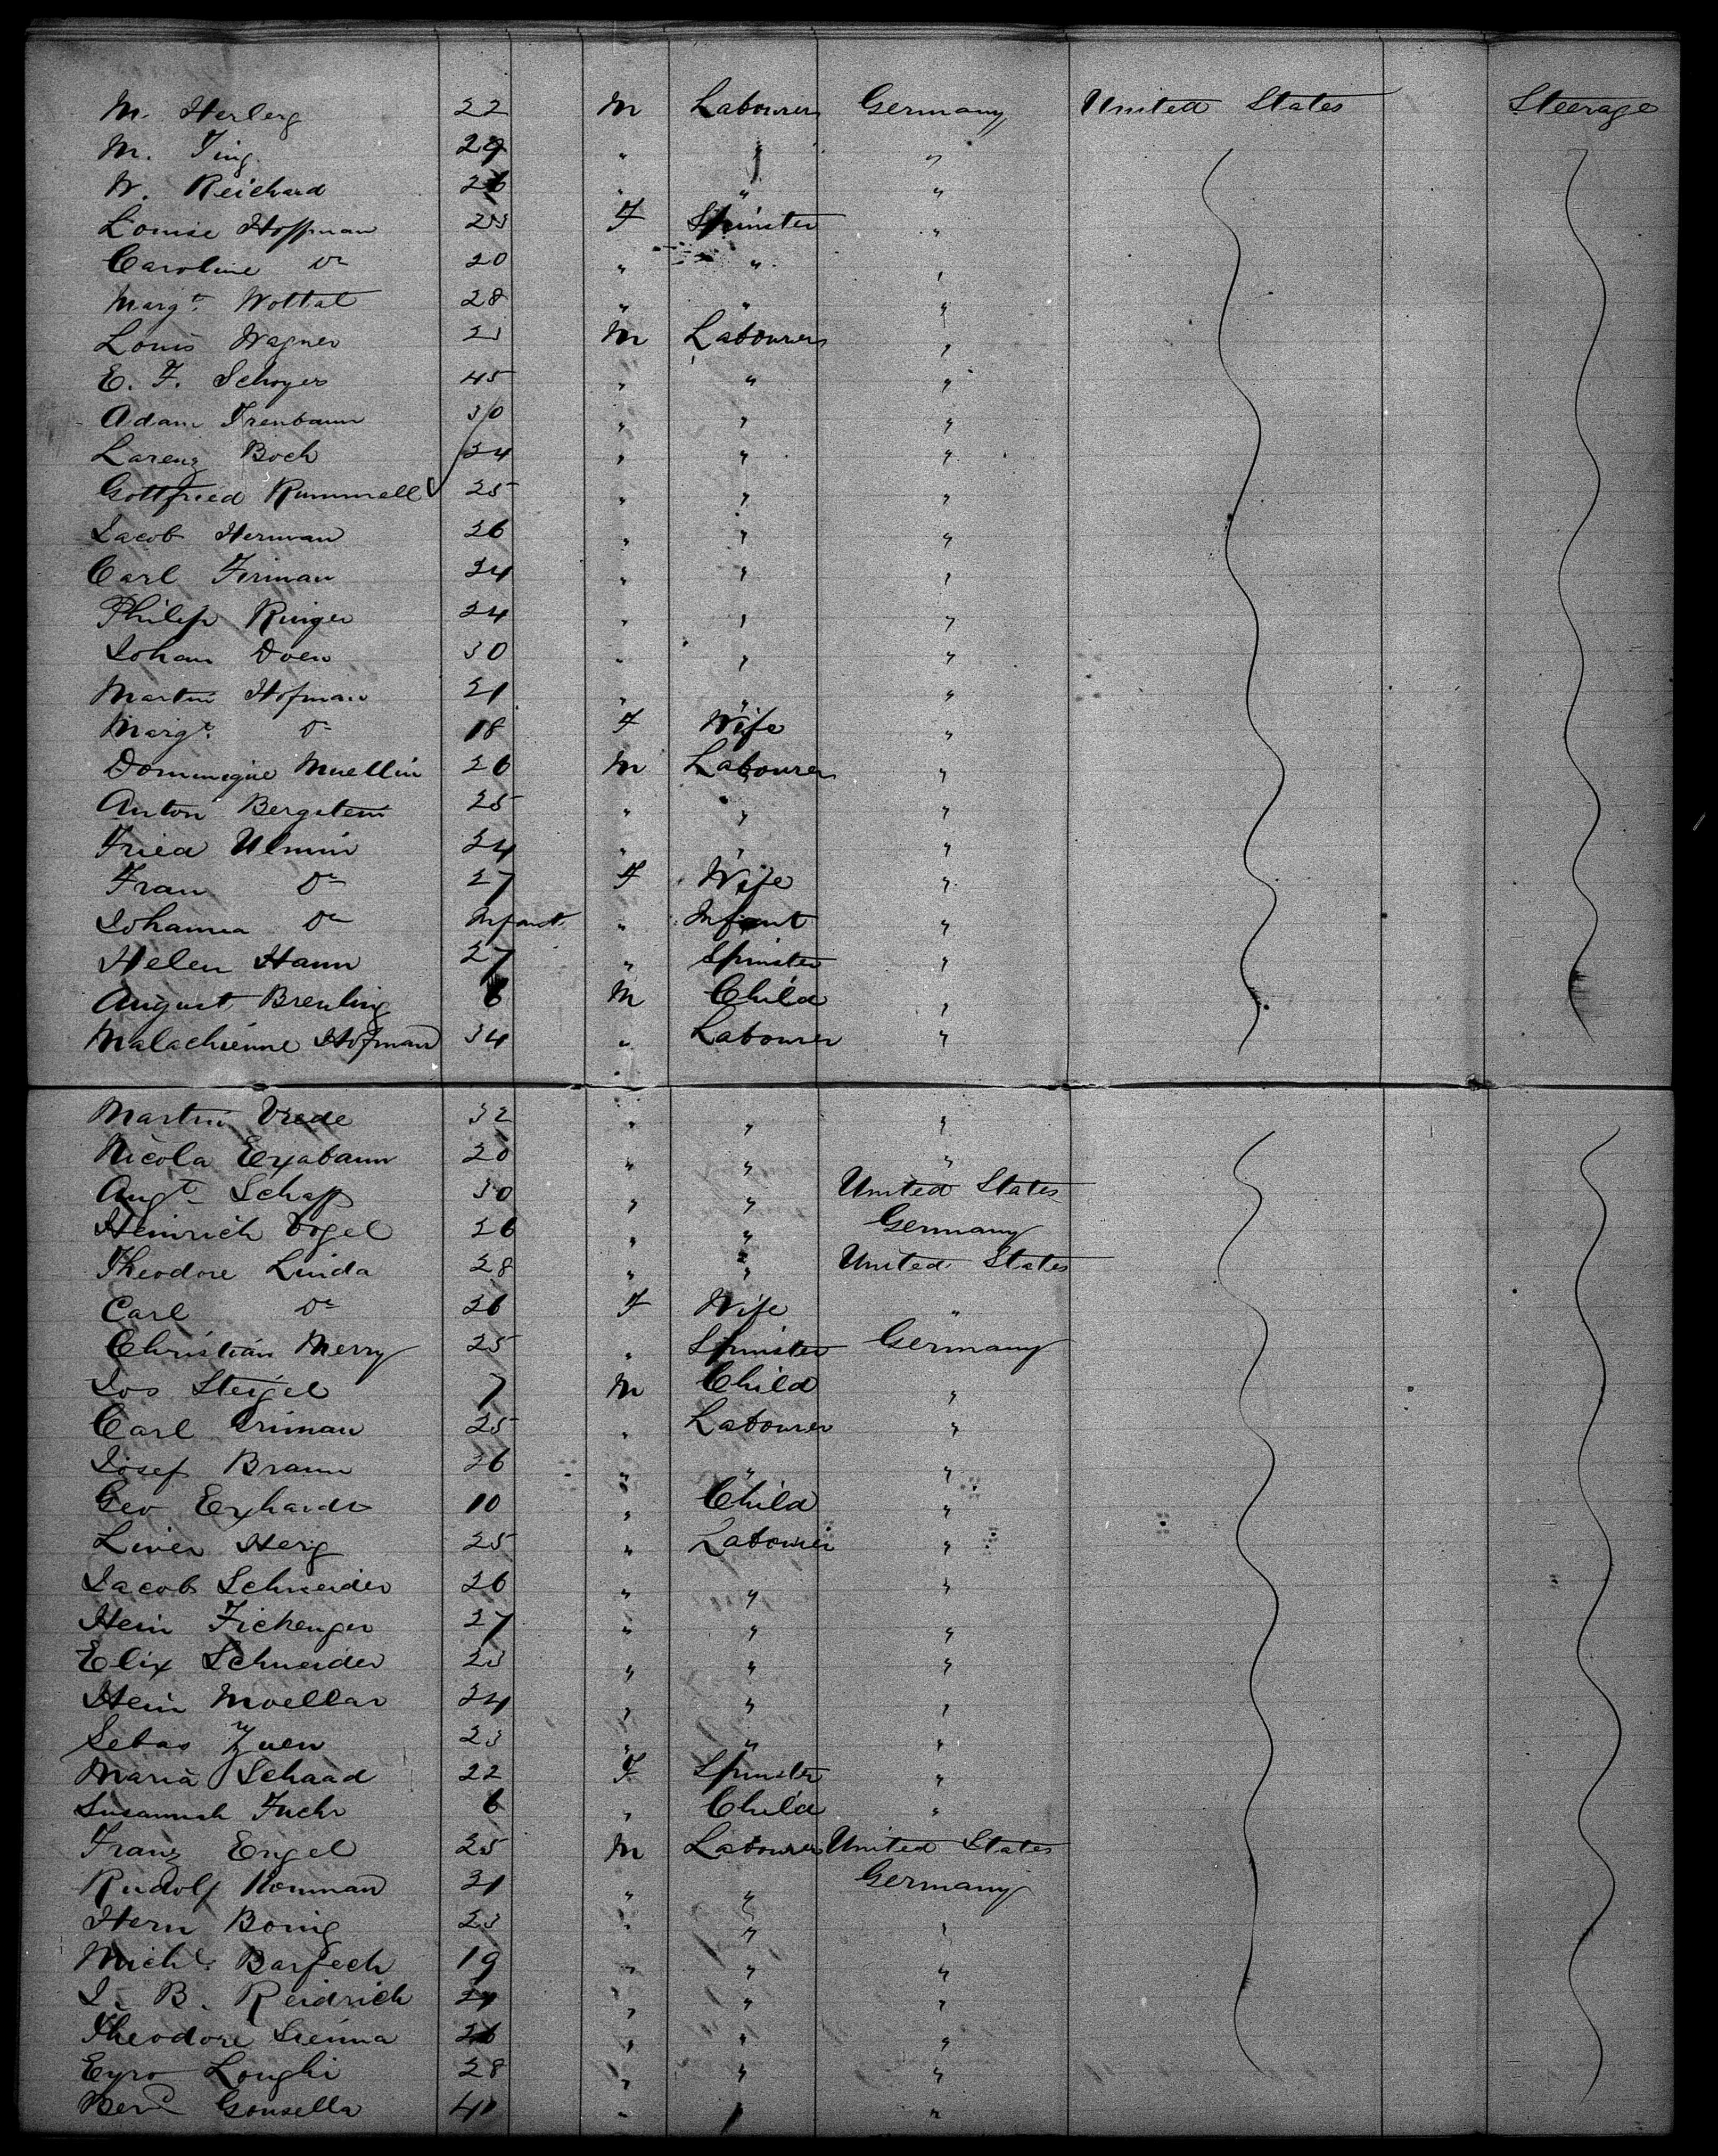 M. Herberg 22 M Labourer Germany United States Steerage
M. Ting 29 " " "
W. Reichard 26 " " "
Louise Hoffman 23 F Spinster "
Caroline Do 20 " " "
Margt. Wottal 28 " " "
Louis Wagner 23 M Labourer "
E. F. Schoyer 45 " " "
Adam 30 " " "
Lorenz Boch 24 " " "
Gottfried Rummell 25 " " "
Jacob Herman 26 " " "
Carl Firman 34 " " "
Philip Ringer 24 " " "
Johan Doen 30 " " "
Martin Hofman 21 " " "
Margt. Do 18 F Wife "
Dominique Muellin 26 M Labourer "
Anton Bergstein 25 " " "
Fried Ulmin 24 " " "
Frau Do 27 F Wife "
Johanna Do Infant " Infant "
Helen Hann 27 " Spinster "
August Breuling 6 M Child "
Malachienne Hofman 34 " Labourer "
Martin Vrede 32 " " "
Nicola 20 " " "
Augt Schaff 30 " " United States
Heinrich Vogel 26 " " Germany
Theodore Linda 28 " " United States
Carl Do 26 F Wife "
Christian Merry 25 " Spinster Germany
Jos Steigel 7 M Child "
Carl 25 " Labourer "
Josef Braun 26 " " "
Geo Exhardt 10 " Child "
Herg 25 " Labourer "
Jacob Schneider 26 " " "
Hein 27 " " "
Elix Schneider 23 " " "
Hein Moellar 24 " " "
Sebas Zuen 23 " " "
Maria Schaad 22 F Spinster "
Susannah Fuchs 6 " Child "
Franz Engel 25 M Labourer United States
Rudolf 31 " " Germany
Herm Bonig 23 " " "
Michl. Barfech 19 " " "
J. B. Reidrich " " "
Theodore Sienna 26 " " "
Eyro Longhi 28 " " "
Berd Gonsella 41 " " "